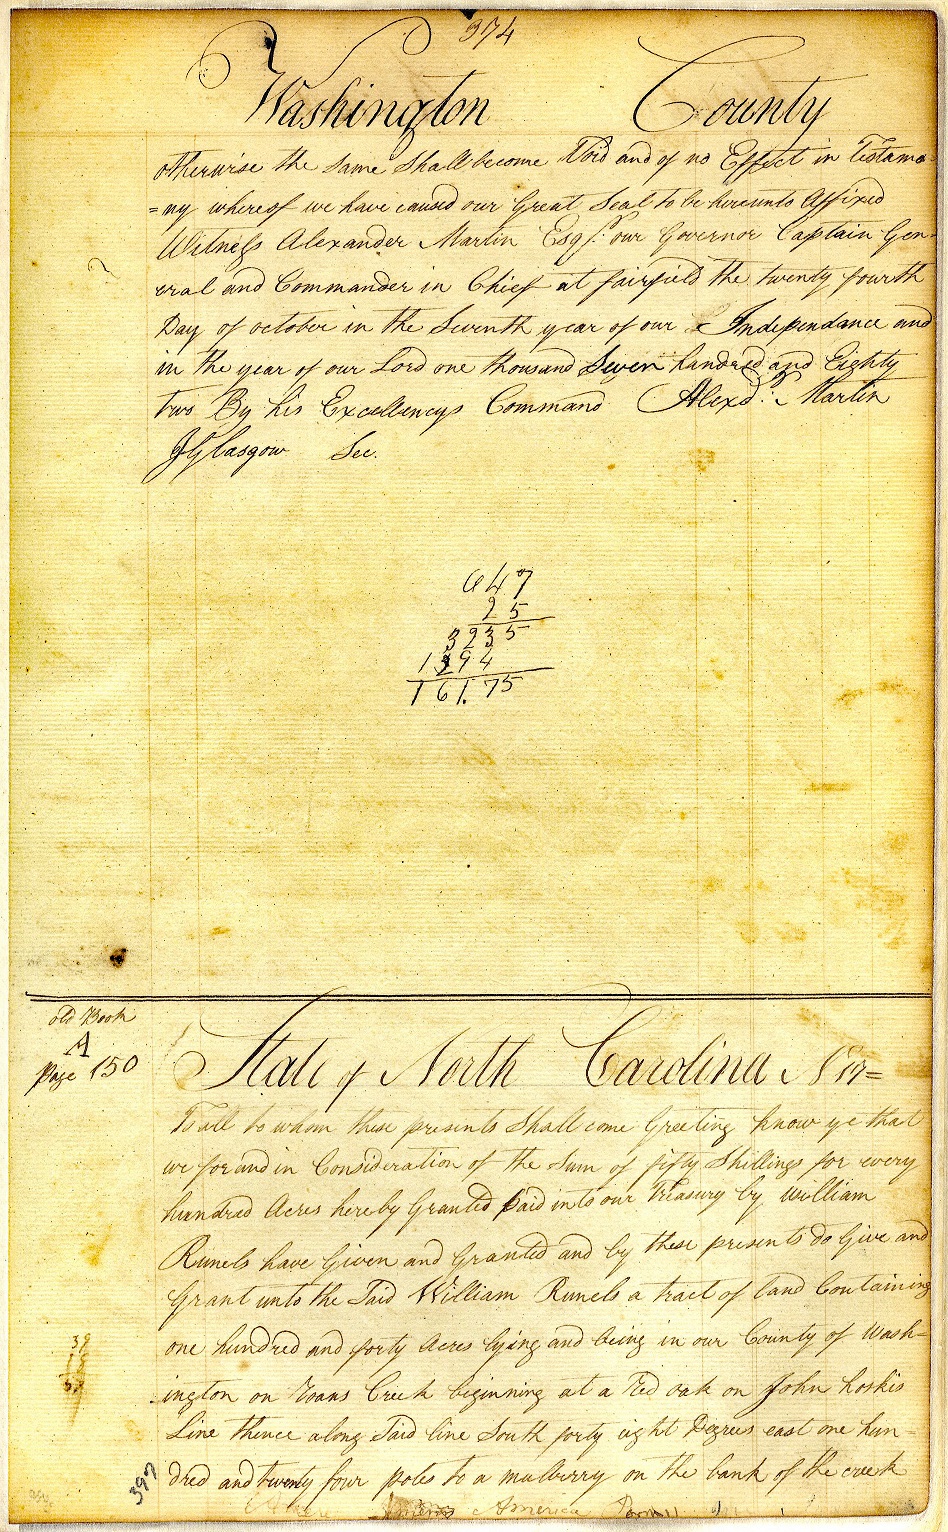 374
Washington County
otherwise the same Shall become Void and of no Effect in Testamo
=ny whereof we have caused our Great Seal to be hereunto Affixed
Witness Alexander Martin Esqr. our Governor Captain Gen-
eral and Commander in Chief at fairfield the twenty fourth
Day of october in the Seventh year of our Independance and
in the year of our Lord one thousand Seven hundred and Eighty
two By his Excellencys Command Alexdr. Martin
JGlasgow Sec.
647
25
3235
1294
161.75
old Book
A
Page 150
State of North Carolina No
To all to whom these presents Shall come Greeting know ye that
we for and in Consideration of the Sum of fifty Shillings for every
hundred Acres hereby Granted paid into our Treasury by William
Runels have Given and Granted and by these presents do Give and
Grant unto the Said William Runels a tract of land Containing
one hundred and forty Acres lying and being in our County of Wash-
ington on Roans Creek beginning at a Red oak on John hoskis
Line thence along Said line South forty eight Degrees east one hun-
dred and twenty four poles to a mulberry on the bank of the creek
397
America